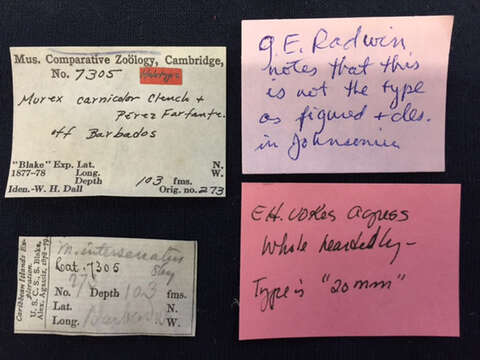 Mus. Comparative Zoölogy, Cambridge,
No. 7305 Holotype
Murex carnicolor Clench +
Pérez Farfante.
off Barbados
"Blake" Exp. Lat. N.
1877-78 Long. W.
Depth 103 fms.
Iden.-W. H. Dall Orig. no. 273
G.E. Radwin
notes that this
is not the type
as figured + des.
in Johnsonia
Caribbean Islands Ex-
ploration
U. S. C. S., S. Blake,
Alex. Agassiz, 1878-79.
M.
Cat. 7305
273
No. Depth 103 fms.
Lat. N.
Long. W.
EH. Vokes agrees
whole heartedly —
Type is "20mm"